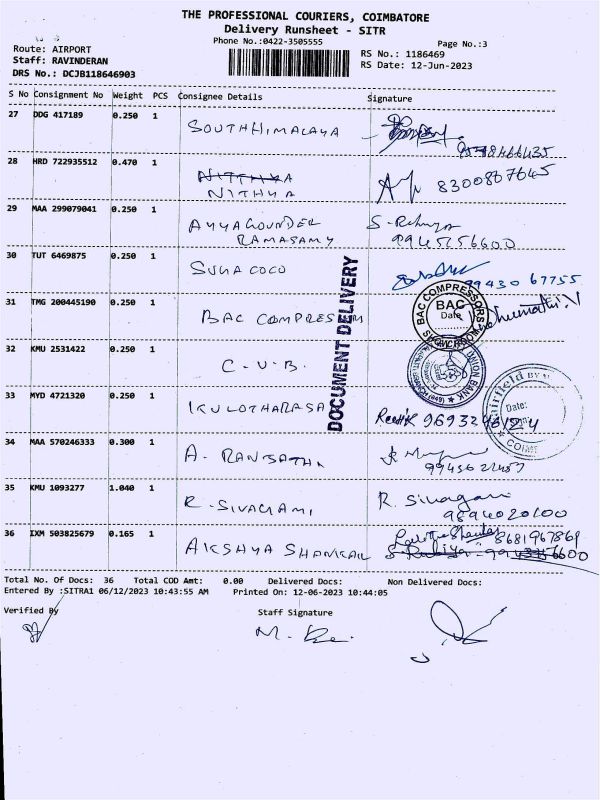 THE PROFESSIONAL COURIERS, COIMBATORE
Delivery Runsheet - SITR
Phone No.:0422-3505555
Page No.:3
Route: AIRPORT
Staff: RAVINDERAN
DRS No.: DCJB118646903
RS No.: 1186469
RS Date: 12-Jun-2023
S No Consignment No Weight PCS Consignee Details Signature
27 DDG 417189 0.250 1 SOUTHHIMALAYA
28 HRD 722935512 0.470 1 NITHYA
NITHYA 8300867645
29 MAA 299079041 0.250 1 AYYAGOUNDER
RAMASAMY
30 TUT 6469875 0.250 1 SUGA COCO 99430 67755
31 TMG 200445190 0.250 1 BAC COMPRESSM
BAC COMPRESSORS
BAC
Date
DOCUMENT DELIVERY
32 KMU 2531422 0.250 1 C.U.B.
UNION BANK
33 MYD 4721320 0.250 1 KULOTHARASA
Fairfield BY M
Date:
COIMB
34 MAA 570246333 0.300 1 A. RANJATH
35 KMU 1093277 1.040 1 R. SIVAGAMI R. Sivagami
9894020100
36 IXM 503825679 0.165 1 AKSHYA SHANKAR 8681967869
Total No. Of Docs: 36 Total COD Amt: 0.00 Delivered Docs: Non Delivered Docs:
Entered By :SITRA1 06/12/2023 10:43:55 AM Printed On: 12-06-2023 10:44:05
Verified By Staff Signature